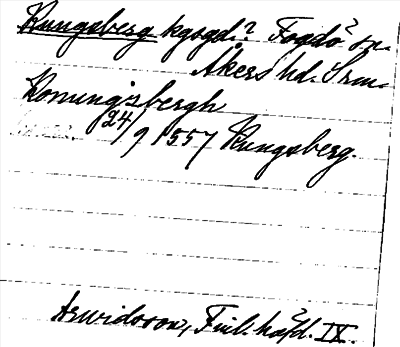 Kungsberg kgsgd.? Fogdö sn.
Åkers hd. Srm.
Konungsbergh
24/9 1557 Kungsberg.
Arwidsson, Finl. häfd. IX.